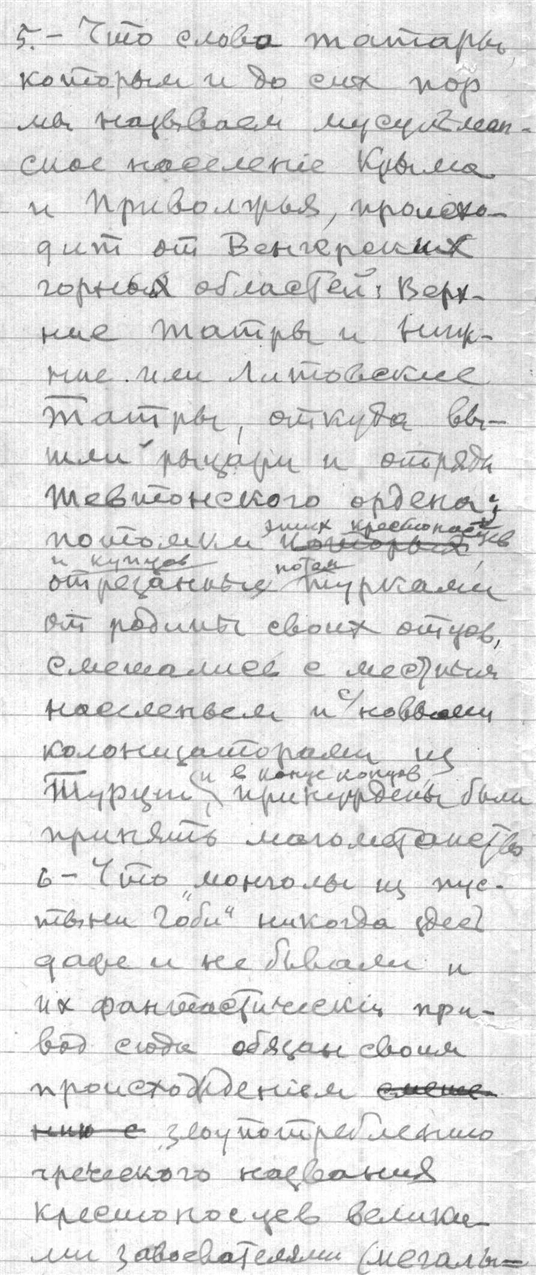 5. – Что слово татары,
которым и до сих пор
мы называем мусульман-
ское населеніе Крыма
и Приволжья, происхо-
дит от Венгерских
горных областей: Верх-
ние Татры и Ниж-
ние или Литовские
Татры, откуда вы-
шли рыцари и отряды
Тевтонского ордена;
потомки этих крестоносцев которых
и купцов
отрезанные потом турками
от родины своих отцов,
смешались с местным
населеньем и с новыми
колонизаторами из
Турции и в конце концов принуждены были
принять магометанство
6 – Что монголы из пус-
тыни "Гоби" никогда здесь
даже и не бывали и
их фантастический при-
вод сюда обязан своим
происхожденіем смеше-
нию с злоупотреблению
греческого названия
крестоносцев велики-
ми завоевателями (мегалы=